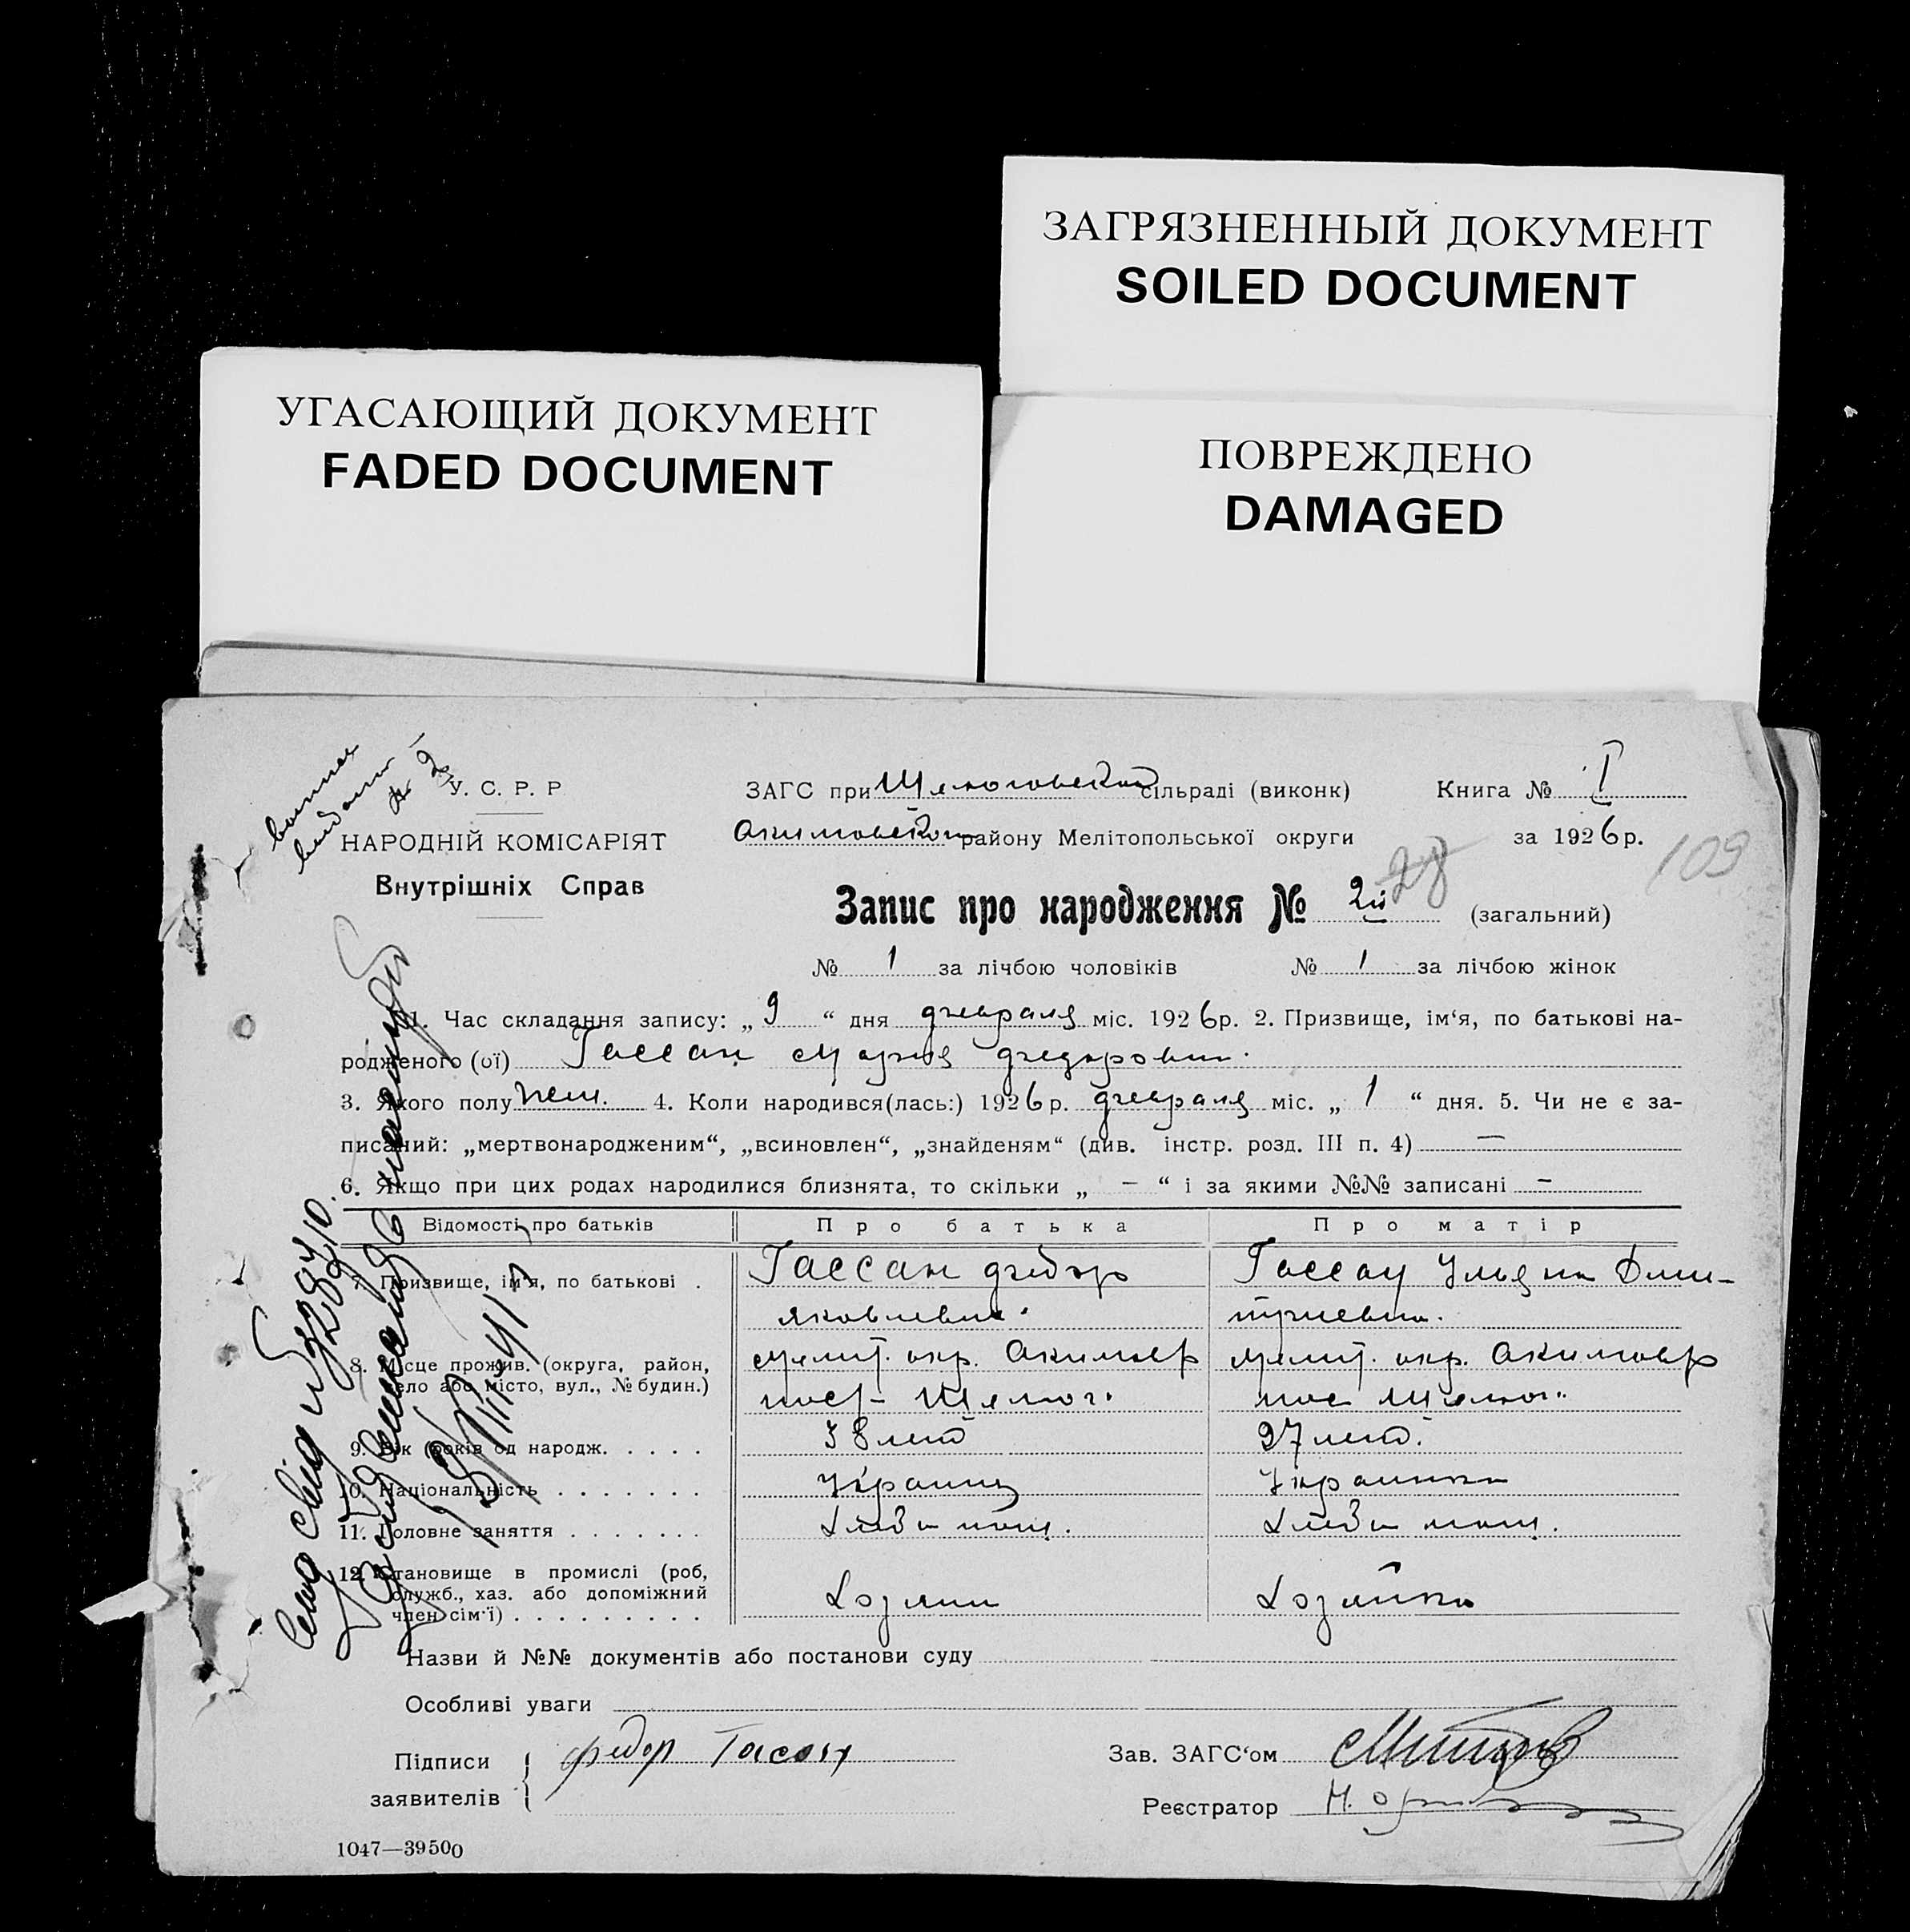 ЗАГРЯЗНЕННЫЙ ДОКУМЕНТ
SOILED DOCUMENT
УГАСАЮЩИЙ ДОКУМЕНТ
FADED DOCUMENT
ПОВРЕЖДЕНО
DAMAGED
У. С. Р. Р
НАРОДНІЙ КОМІСАРІЯТ
Внутрішніх Справ
ЗАГС при сільраді (виконк)
Книга № I
Акимовском району Мелітопольської округи
за 1926 р.
109
28
Запис про народження № 2й (загальний)
№ 1 за лічбою чоловіків № 1 за лічбою жінок
1. Час складання запису: „ 9 “ дня февраля міс. 1926 р. 2. Призвище, ім‘я, по батькові на-
родженого (ої) Гассан Мария
3. Якого полу жен. 4. Коли народився(лась:) 1926 р. февраля міс. „ 1 “ дня. 5. Чи не є за-
писаний: „мертвонародженим“, „всиновлен“, „знайденям“ (див. інстр. розд. III п. 4) —
6. Якщо при цих родах народилися близнята, то скільки „ — “ і за якими №№ записані —
Відомості про батьків Про батька Про матір
7. Призвище, ім‘я, по батькові . Гассан Федор Гассан Ульяна Дми-
яковлевич. триевна.
8. Місце прожив. (округа, район, Мелит. окр. Акимовр Мелит. окр. Акимовр
село або місто, вул., № будин.)
9. Вік (років од народж. . . . . 38 лет 27 лет.
10. Національність . . . . . . . Украинец Украинка
11. Головне заняття . . . . . . . Хлебопаш. Хлебопаш.
12. Становище в промислі (роб,
служб., хаз. або допоміжний Хозяин Хозяйка
член сім‘ї) . . . . . . . . .
Назви й №№ документів або постанови суду
Особливі уваги
Підписи Федор Гасан
заявителів
Зав. ЗАГС‘ом
Реєстратор
1047—39500